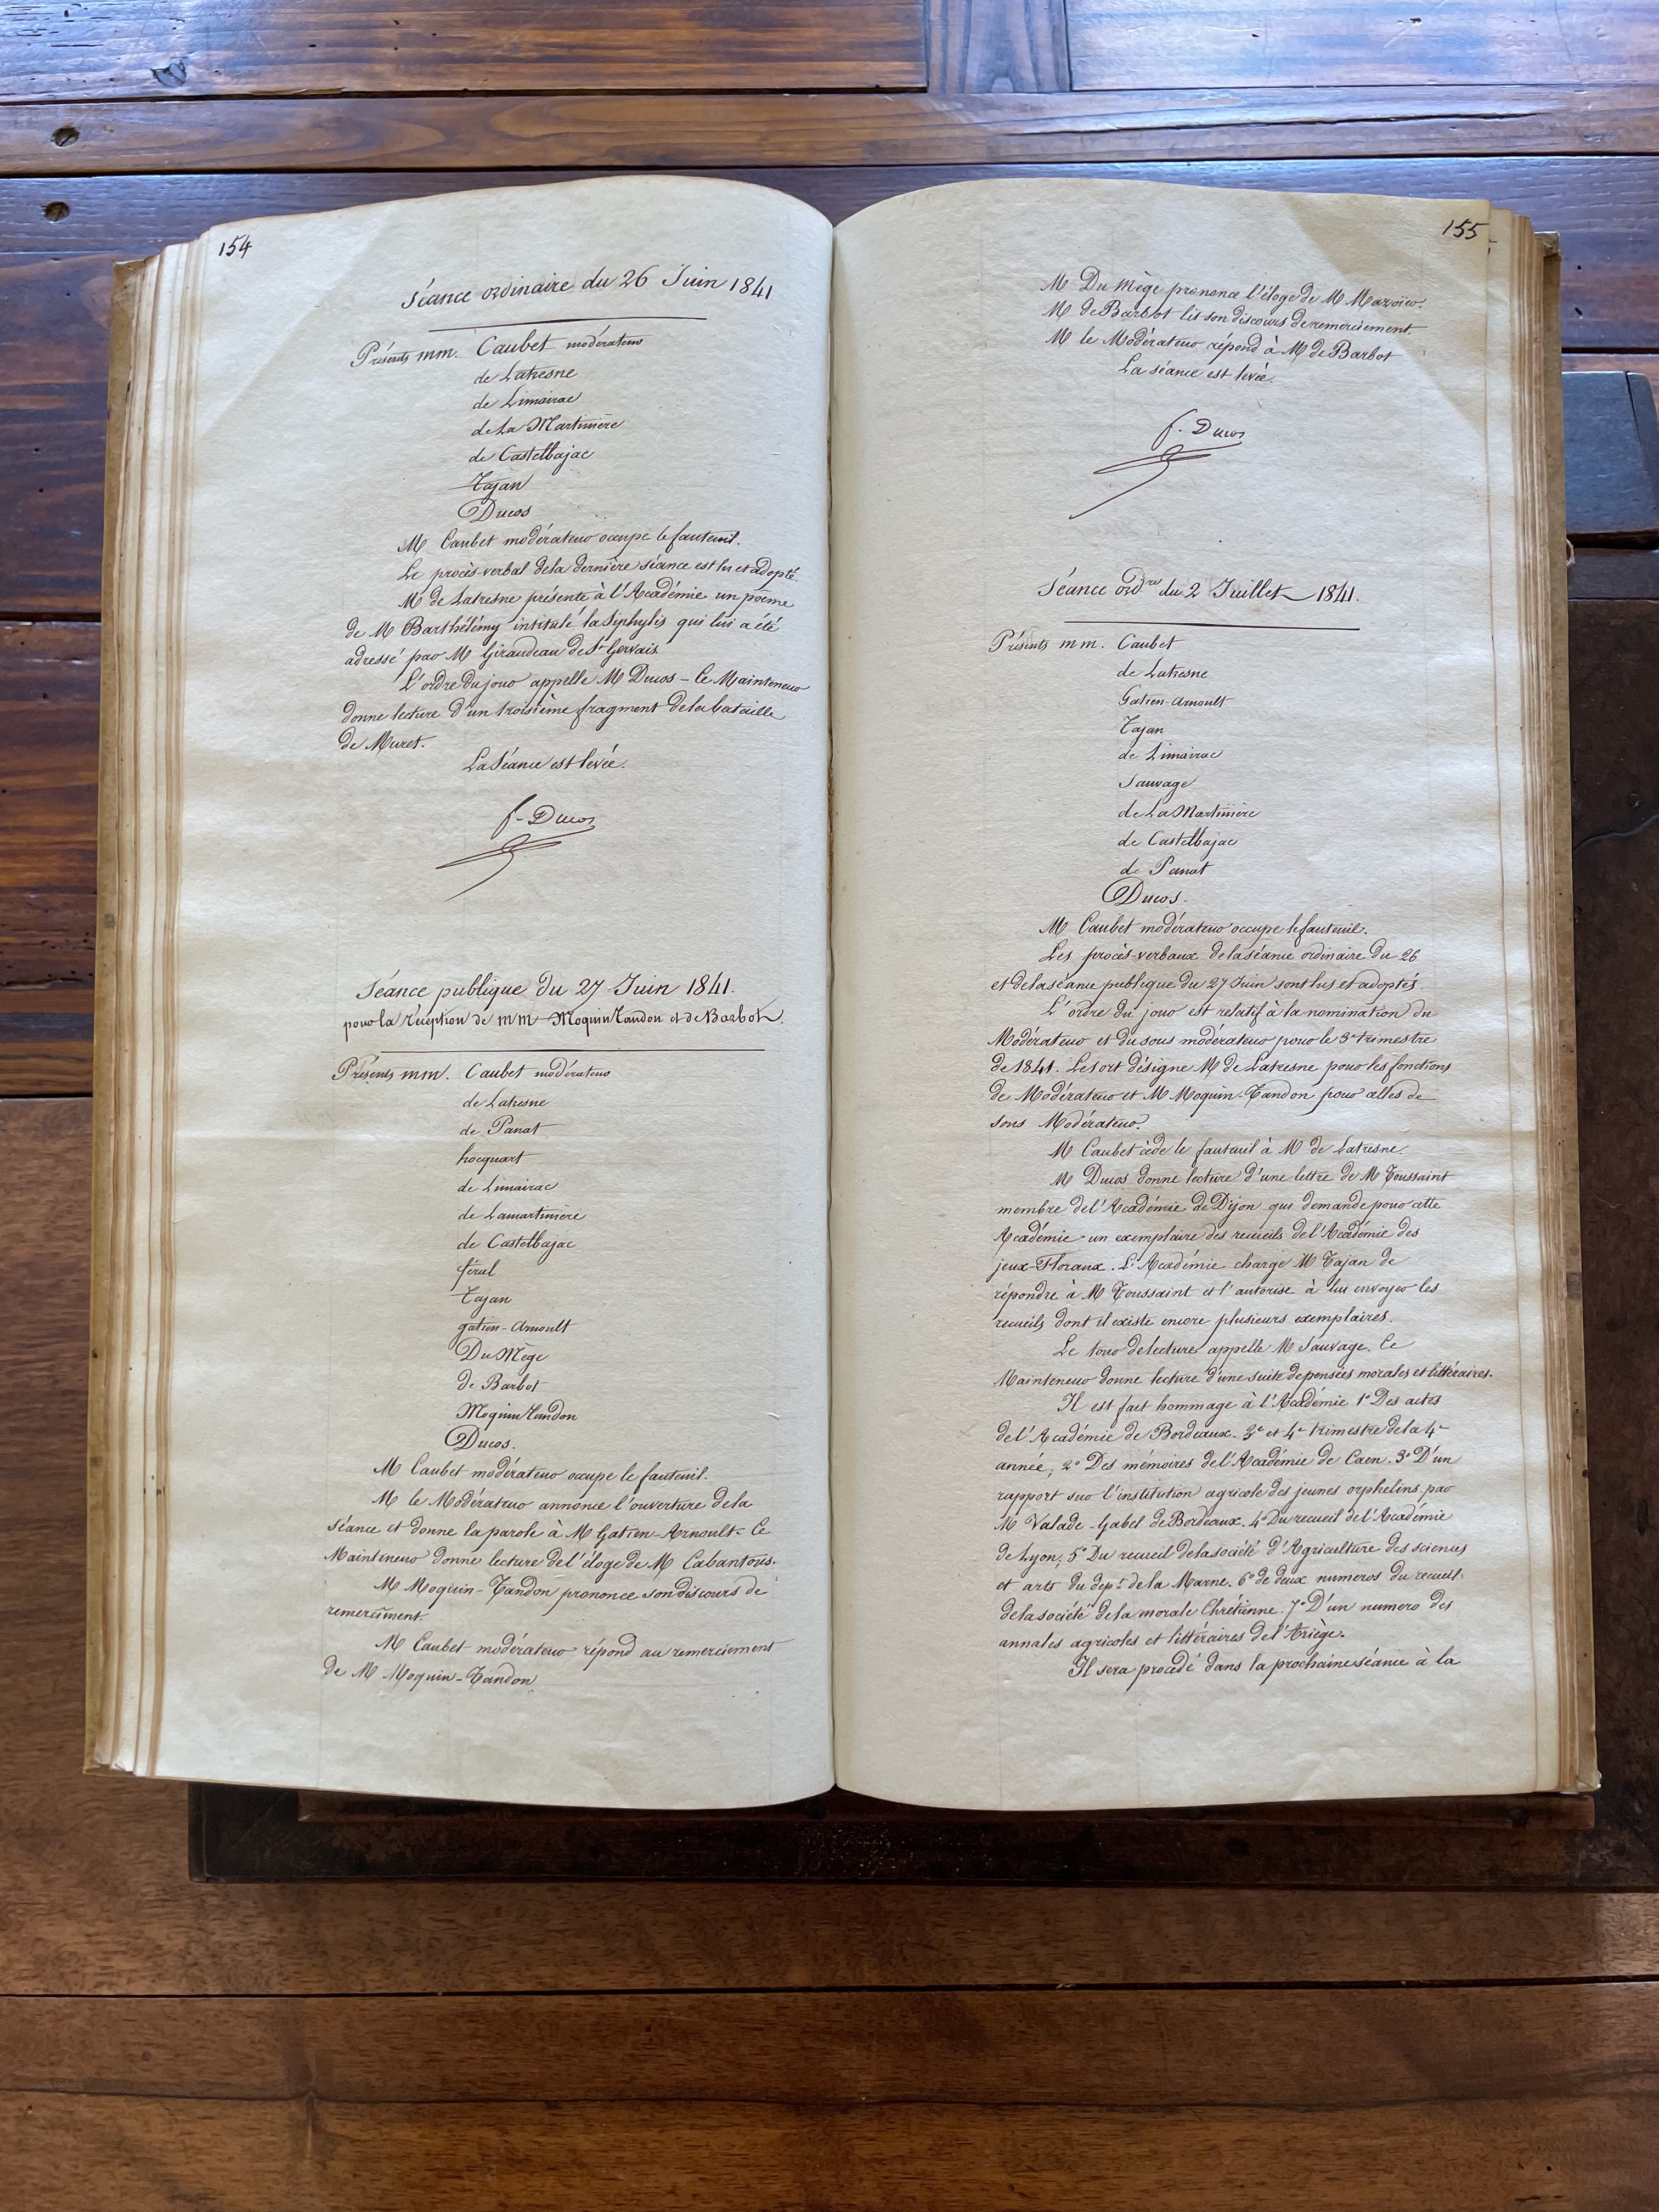 154
Séance ordinaire du 26 Juin 1841
Présents mm. Caubet modérateur
de Latresne
de Limairac
de La Martinière
de Castelbajac
Tajan
Ducos
M Caubet modérateur occupe le fauteuil.
Le procès-verbal de la dernière séance est lu et adopté.
M de Latresne présente à l'Académie un poëme
de M Barthélémy intitulé la Siphylis qui lui a été
adressé par M Giraudeau de St Gervais
L'ordre du jour appelle M Ducos - Ce Mainteneur
donne lecture d'un troisième fragment de la bataille
de Muret.
La Séance est levée.
f. Ducos
Séance publique du 27 Juin 1841.
pour la réception de mm Moquin Tandon et de Barbot.
Présents mm. Caubet modérateur
de Latresne
de Panat
hocquart
de Limairac
de Lamartinière
de Castelbajac
féral
Tajan
gatien-Arnoult
Du Mège
de Barbot
Moquin Tandon
Ducos.
M Caubet modérateur occupe le fauteuil.
M le Modérateur annonce l'ouverture de la
séance et donne la parole à M Gatien-Arnoult. Ce
Mainteneur donne lecture de l'éloge de M Cabantous.
M Moquin-Tandon prononce son discours de
remerciment.
M Caubet modérateur répond au remerciement
de M Moquin-Tandon
155
M Du Mège prononce l'éloge de M
M de Barbot lit son discours de remerciement
M le Modérateur répond à M de Barbot
La séance est levée.
f. Ducos
Séance ordre du 2 Juillet 1841.
Présents mm. Caubet
de Latresne
Gatien-Arnoult
Tajan
de Limairac
Sauvage
de La Martinière
de Castelbajac
de Panat
Ducos.
M Caubet modérateur occupe le fauteuil.
Les procès-verbaux de la séance ordinaire du 26
et de la séance publique du 27 Juin sont lus et adoptés.
L'ordre du jour est relatif à la nomination du
Modérateur et du sous modérateur pour le 3e trimestre
de 1841. Le sort désigne M de Latresne pour les fonctions
de Modérateur et M Moquin-Tandon pour celles de
sous Modérateur.
M Caubet cède le fauteuil à M de Latresne.
M Ducos donne lecture d'une lettre de M Toussaint
membre de l'Académie de Dijon qui demande pour cette
Académie un exemplaire des recueils de l'Académie des
jeux-Floraux. L'Académie charge M Tajan de
répondre à M Toussaint et l'autorise à lui envoyer les
recueils dont il existe encore plusieurs exemplaires.
Le tour de lecture appelle M Sauvage. Ce
Mainteneur donne lecture d'une suite de pensées morales et littéraires.
Il est fait hommage à l'Académie 1° Des actes
de l'Académie de Bordeaux. 3e et 4e trimestre de la 4e
année; 2° Des mémoires de l'Académie de Caen. 3° D'un
rapport sur l'institution agricole des jeunes orphelins par
M Valade-Gabel de Bordeaux. 4° Du recueil de l'Académie
de Lyon; 5° Du recueil de la société d'Agriculture des sciences
et arts du dept de la Marne. 6° de deux numeros du recueil
de la société de la morale Chrétienne. 7° D'un numero des
annales agricoles et littéraires de l'Ariège.
Il sera procédé dans la prochaine séance à la